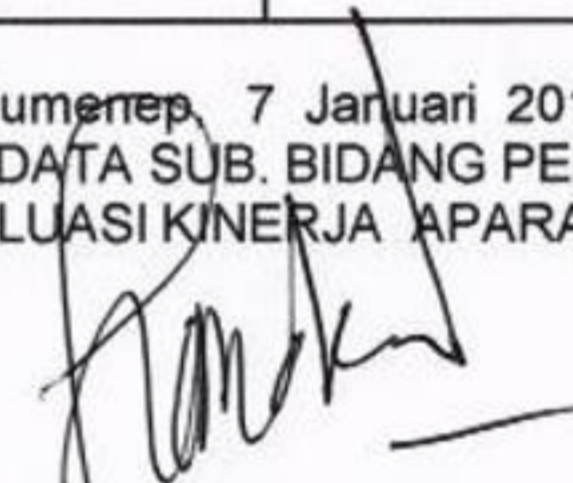 umenep, 7 Januari 201
DATA SUB. BIDANG PE
LUASI KINERJA APARA